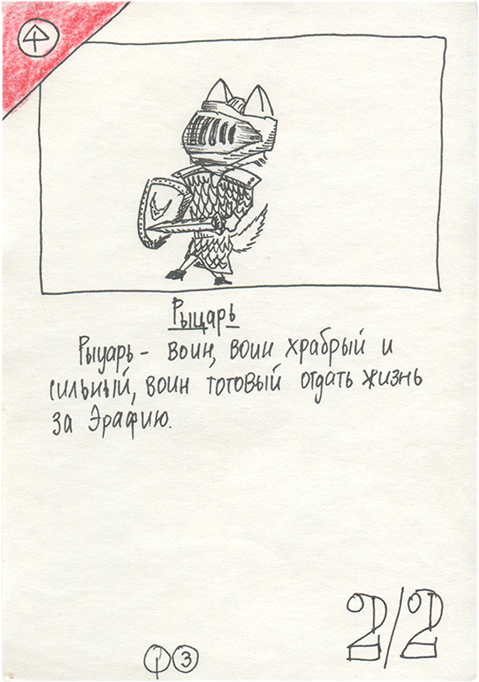 Рыцарь
Рыцарь - воин, воин храбрый и
сильный, воин готовый отдать жизнь
за Эрафию.
2/2
3